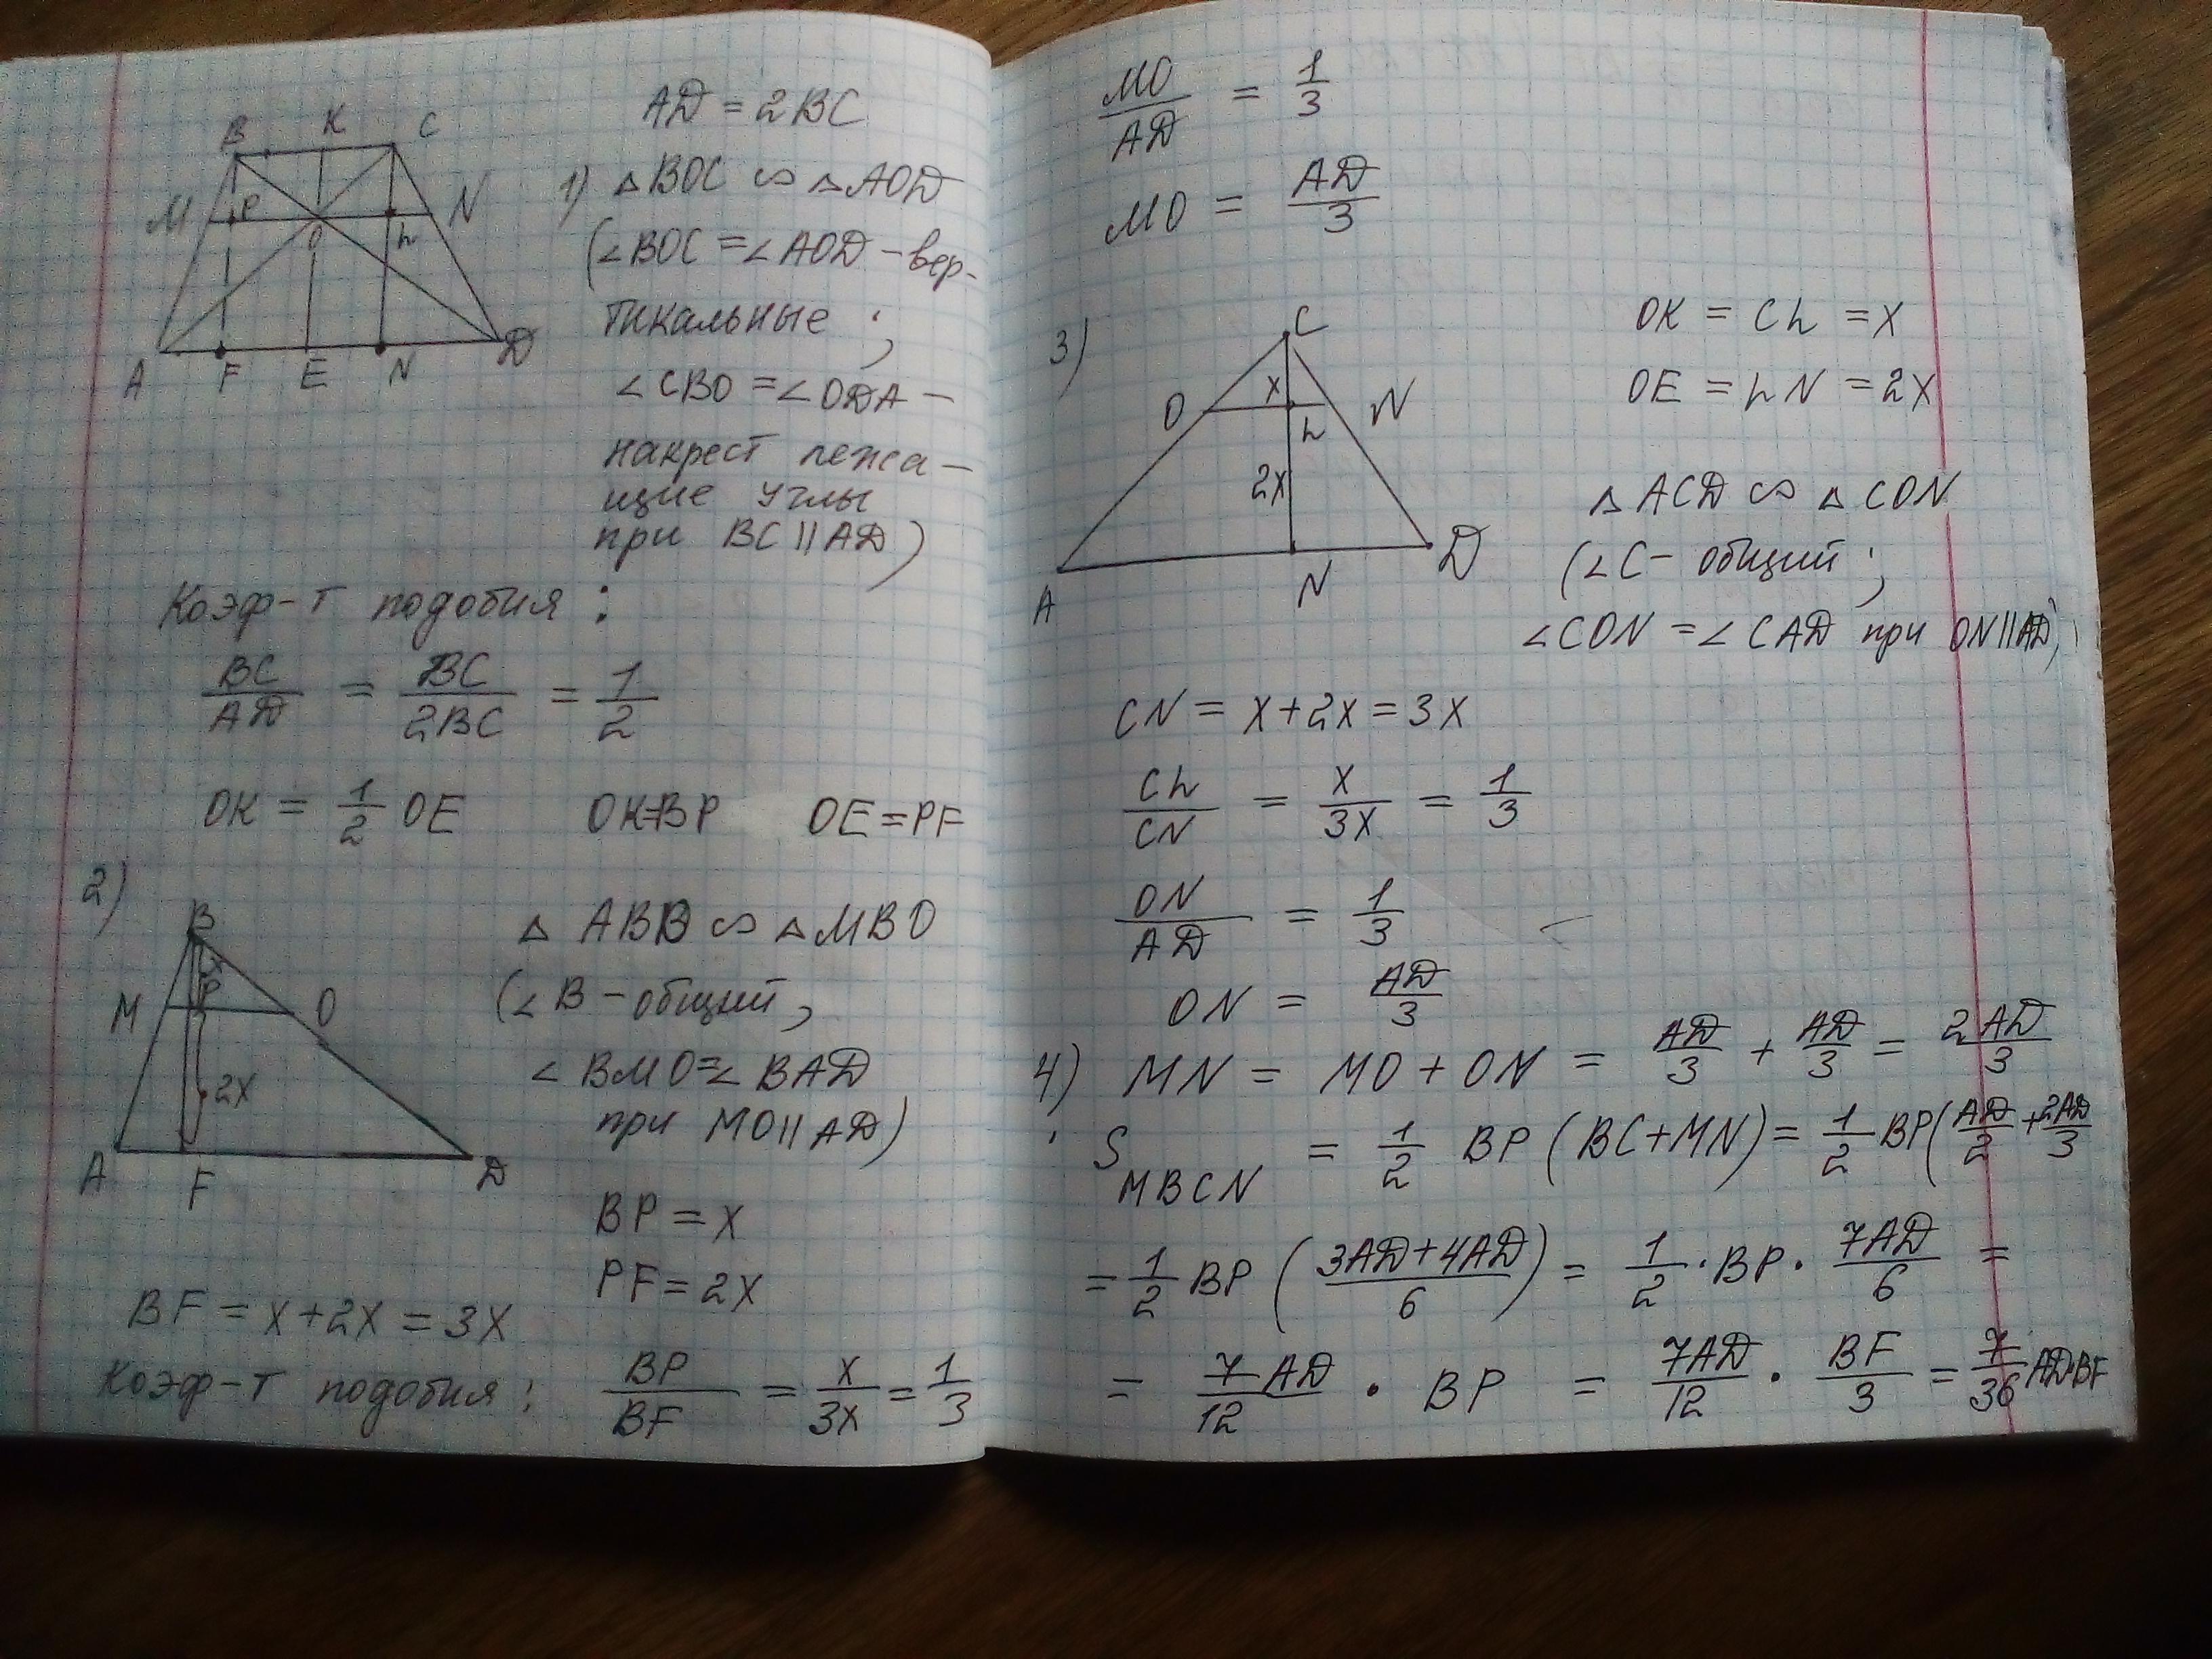 B K C
M P O h N
A F E N D
AD = 2BC
1) △BOC ∽ △AOD
(∠BOC = ∠AOD – вер-
тикальные ;
∠CBO = ∠ODA –
накрест лежа–
щие углы
при BC || AD)
Коэф-т подобия :
BC/AD = BC/2BC = 1/2
OK = 1/2 OE OK=BP OE = PF
2)
B
x
M P O
2x
A F D
△ ABD ∽ △MBO
(∠B – общий,
∠BMO=∠BAD
при MO || AD)
BP = x
PF = 2x
BF = x+2x = 3x
Коэф-т подобия : BP/BF = x/3x = 1/3
MO/AD = 1/3
MO = AD/3
3)
C
O x N
h
2x
A N D
OK = Ch = x
OE = hN = 2x
△ACD ∽ △CON
(∠C – общий ;
∠CON = ∠CAD при ON||AD)
CN = x+2x = 3x
Ch/CN = x/3x = 1/3
ON/AD = 1/3
ON = AD/3
4) MN = MO + ON = AD/3 + AD/3 = 2AD/3
S MBCN = 1/2 BP (BC+MN) = 1/2 BP(AD/2 + 2AD/3
= 1/2 BP (3AD+4AD/6) = 1/2 · BP · 7AD/6 =
= 7/12 AD · BP = 7AD/12 · BF/3 = 7/36 AD·BF